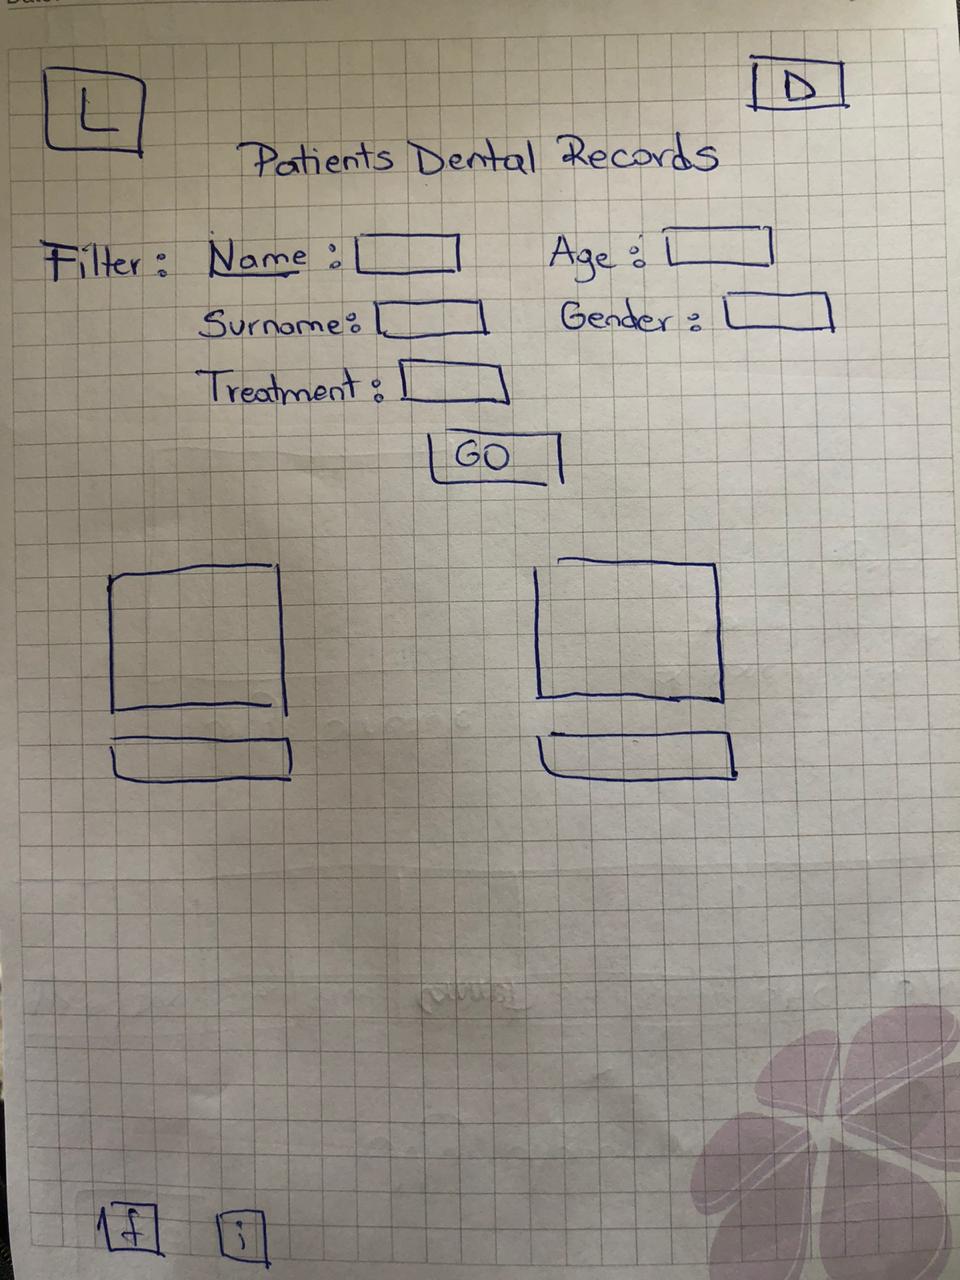 L D
Patients Dental Records
Filter: Name: Age:
Surname: Gender:
Treatment:
GO
f i